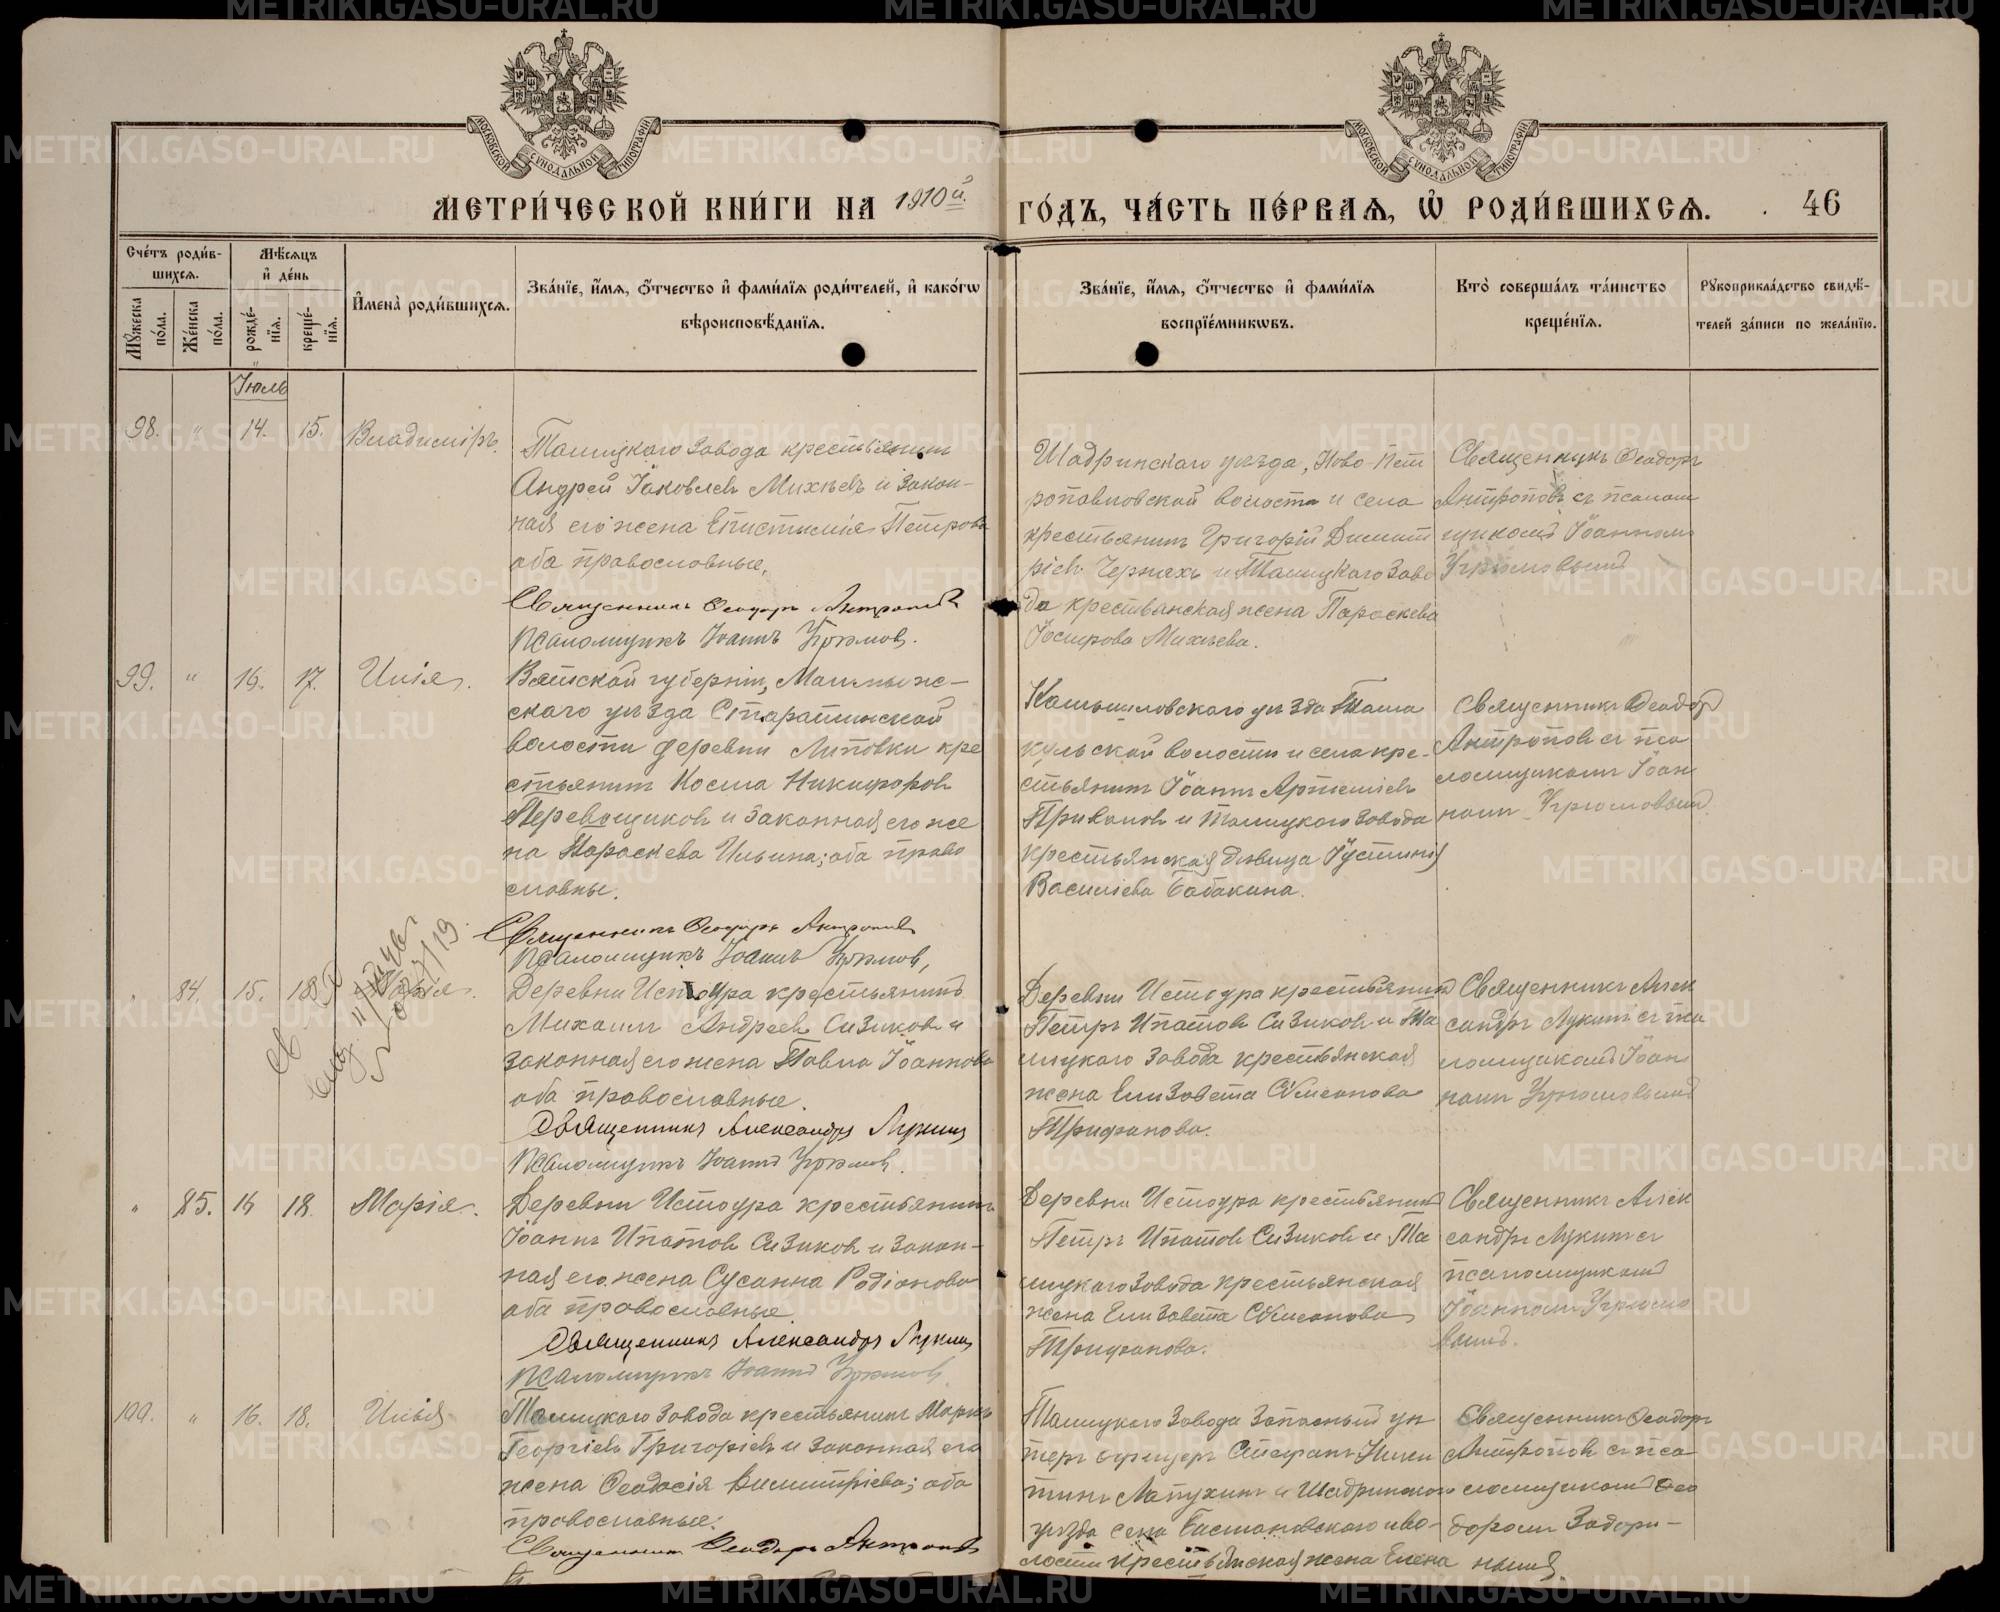 МЕТРИ́ЧЕСКОЙ КНИ́ГИ НА 1910й. ГО́ДЪ, ЧА́СТЬ ПЕ́РВАѦ, Ѡ РОДИ́ВШИХСѦ. 46
МОСКОВСКОЙ СУНОДАЛЬНОЙ ТИПОГРАФІИ
МОСКОВСКОЙ СУНОДАЛЬНОЙ ТИПОГРАФІИ
Сче́тъ роди́вшихсѧ.
Мꙋжеска по́ла.
Же́нска по́ла.
Мѣ́сѧцъ и҆ де́нь
рожде́нїѧ.
креще́нїѧ.
И҆мена̀ роди́вшихсѧ.
Зва́нїе, и҆́мѧ, ѻ҆́тчество и҆ фами́лїѧ роди́телей, и҆ како́гѡ
вѣроисповѣ́данїѧ.
Зва́нїе, и҆́мѧ, ѻ҆́тчество и҆ фами́лїѧ
воспрїе́мникѡвъ.
Кто̀ соверша́лъ та́инство
креще́нїѧ.
Рꙋкоприкла́дство свидѣ́-
телей за́писи по жела́нїю.
Іюль
98. " 14. 15. Владиміръ.
Талицкаго Завода крестьянинъ
Андрей Іаковлевъ Михѣевъ и закон-
ная его жена Епистимія Петрова
оба православные.
Священникъ Ѳеодоръ Антроповъ
Псаломщикъ Іоаннъ Угрюмовъ.
Шадринскаго уѣзда, Ново-Пет
ропавловской волости и села
крестьянинъ Григорій Димит
ріевъ Чернахъ и Талицкаго Заво
да крестьянская жена Параскева
Іосифова Михѣева.
Священникъ Ѳеодоръ
Антроповъ съ псалом
щикомъ Іоанномъ
Угрюмовымъ
99. " 16. 17. Илія.
Вятской губерніи, Малмыж-
скаго уѣзда Старатинской
волости деревни Липовки кре
стьянинъ Косма Никифоровъ
Перевощиковъ и законная его же
на Параскева Ильина; оба право
славны.
Священникъ Ѳеодоръ Антроповъ
Псаломщикъ Іоаннъ Угрюмовъ,
Камышловскаго уѣзда Таша
кульской волости и села кре-
стьянинъ Іоаннъ Артеміевъ
и Талицкаго Завода
крестьянская дѣвица Іустинія
Василіева Бабакина.
Священникъ Ѳеодоръ
Антроповъ съ пса
ломщикомъ Іоан
номъ Угрюмовымъ
84. 15. 18.
Деревни Истоура крестьянинъ
Михаилъ Андреевъ Сизиковъ и
законная его жена Павла Іоаннова
оба православные.
Священникъ Александръ Лукинъ
Псаломщикъ Іоаннъ Угрюмовъ.
Деревни Истоура крестьянинъ
Петръ Ипатовъ Сизиковъ и Та
лицкаго Завода крестьянская
жена Елизавета Симеонова
Трифанова.
Священникъ Алек
сандръ Лукинъ съ пса
ломщикомъ Іоан
номъ Угрюмовымъ
" 85. 16 18. Марія.
Деревни Истоура крестьянинъ
Іоаннъ Ипатовъ Сизиковъ и закон-
ная его жена Сусанна Родіонова
оба православные.
Священникъ Александръ Лукинъ
Псаломщикъ Іоаннъ Угрюмовъ.
Деревни Истоура крестьянинъ
Петръ Ипатовъ Сизиковъ и Та
лицкаго Завода крестьянская
жена Елизавета Симеонова
Трифанова.
Священникъ Алек
сандръ Лукинъ съ
псаломщикомъ
Іоанномъ Угрюмо
вымъ.
100. " 16. 18. Илья
Талицкаго Завода крестьянинъ Маркъ
Георгіевъ Григорьевъ и законная его
жена Ѳеодосія Димитріева; оба
православные.
Священникъ Ѳеодоръ Антроповъ
Талицкаго Завода Запасный ун
теръ офицеръ Стефанъ Ники
тинъ Лапухинъ и Шадринскаго
уѣзда села и во-
лости крестьянская жена Елена
Священникъ Ѳеодоръ
Антроповъ съ пса
ломщикомъ Ѳео
доромъ Задори-
нымъ.
METRIKI.GASO-URAL.RU